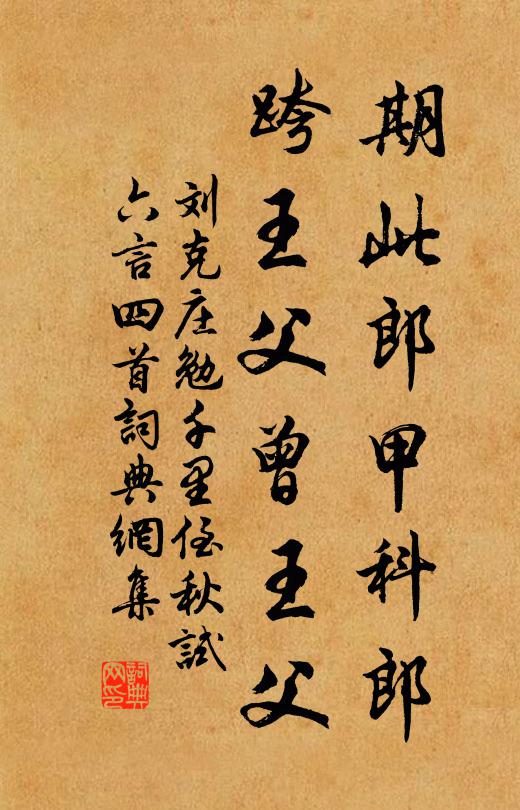 期此郎甲科郎
跨王父曾王父
刘克庄勉千里侄秋試
六言四首詞典網集
詞典
网印